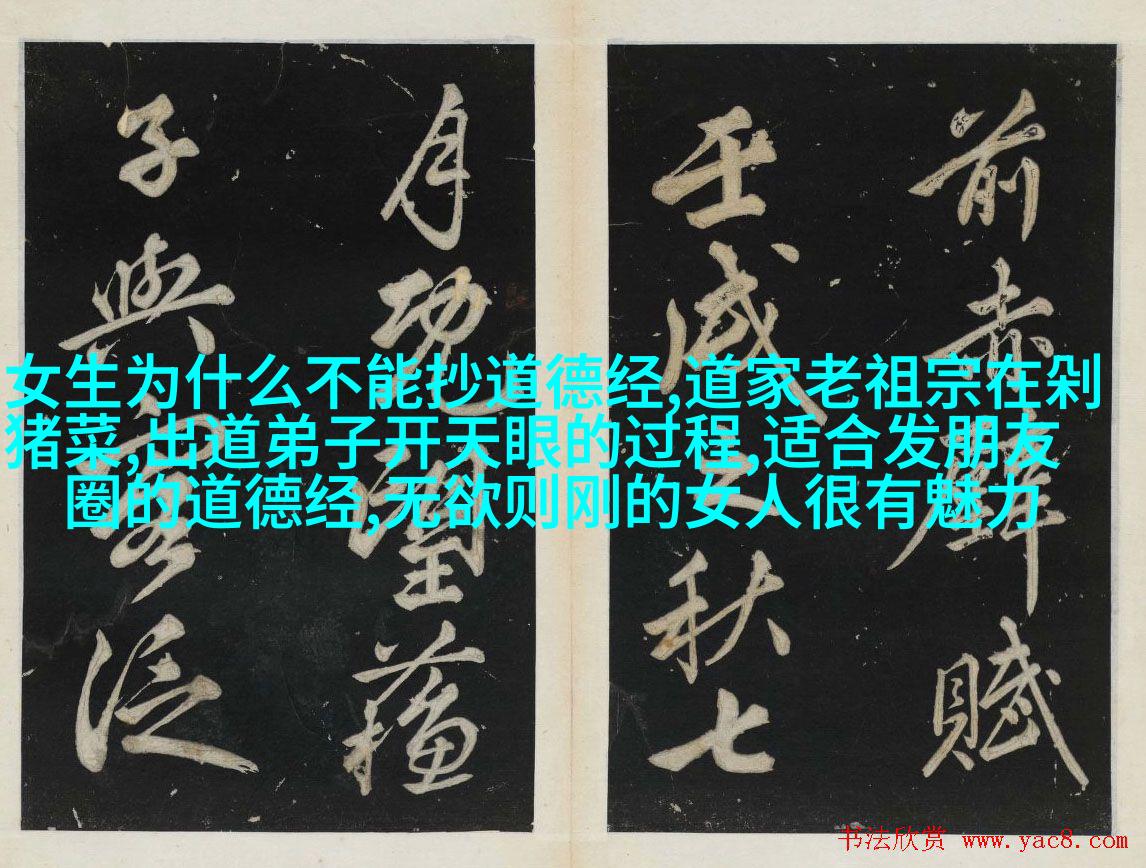 前赤壁賦
壬戌之秋七
月既望蘇
子與客泛
女生为什么不能抄道德经,道家老祖宗在剁
猪菜,出道弟子开天眼的过程,适合发朋友
圈的道德经,无欲则刚的女人很有魅力
书法欣赏 www.yac8.com